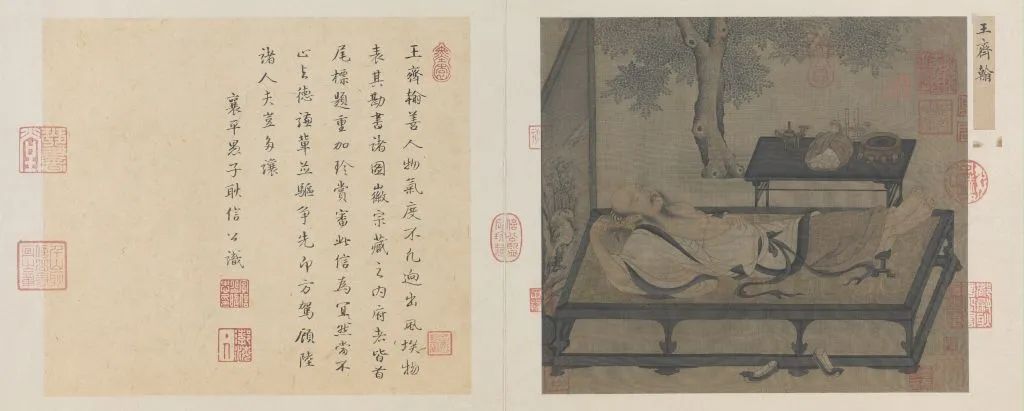 王齊翰
王齊翰善人物氣度不凡迥出風埃物
表其勘書諸圖徽宗藏之内府者皆首
尾標題重加珍賞審此信為冥然當不
止与德謙輩並驅爭先即方駕顧陸
諸人夫豈多讓
襄平愚子耿信公識